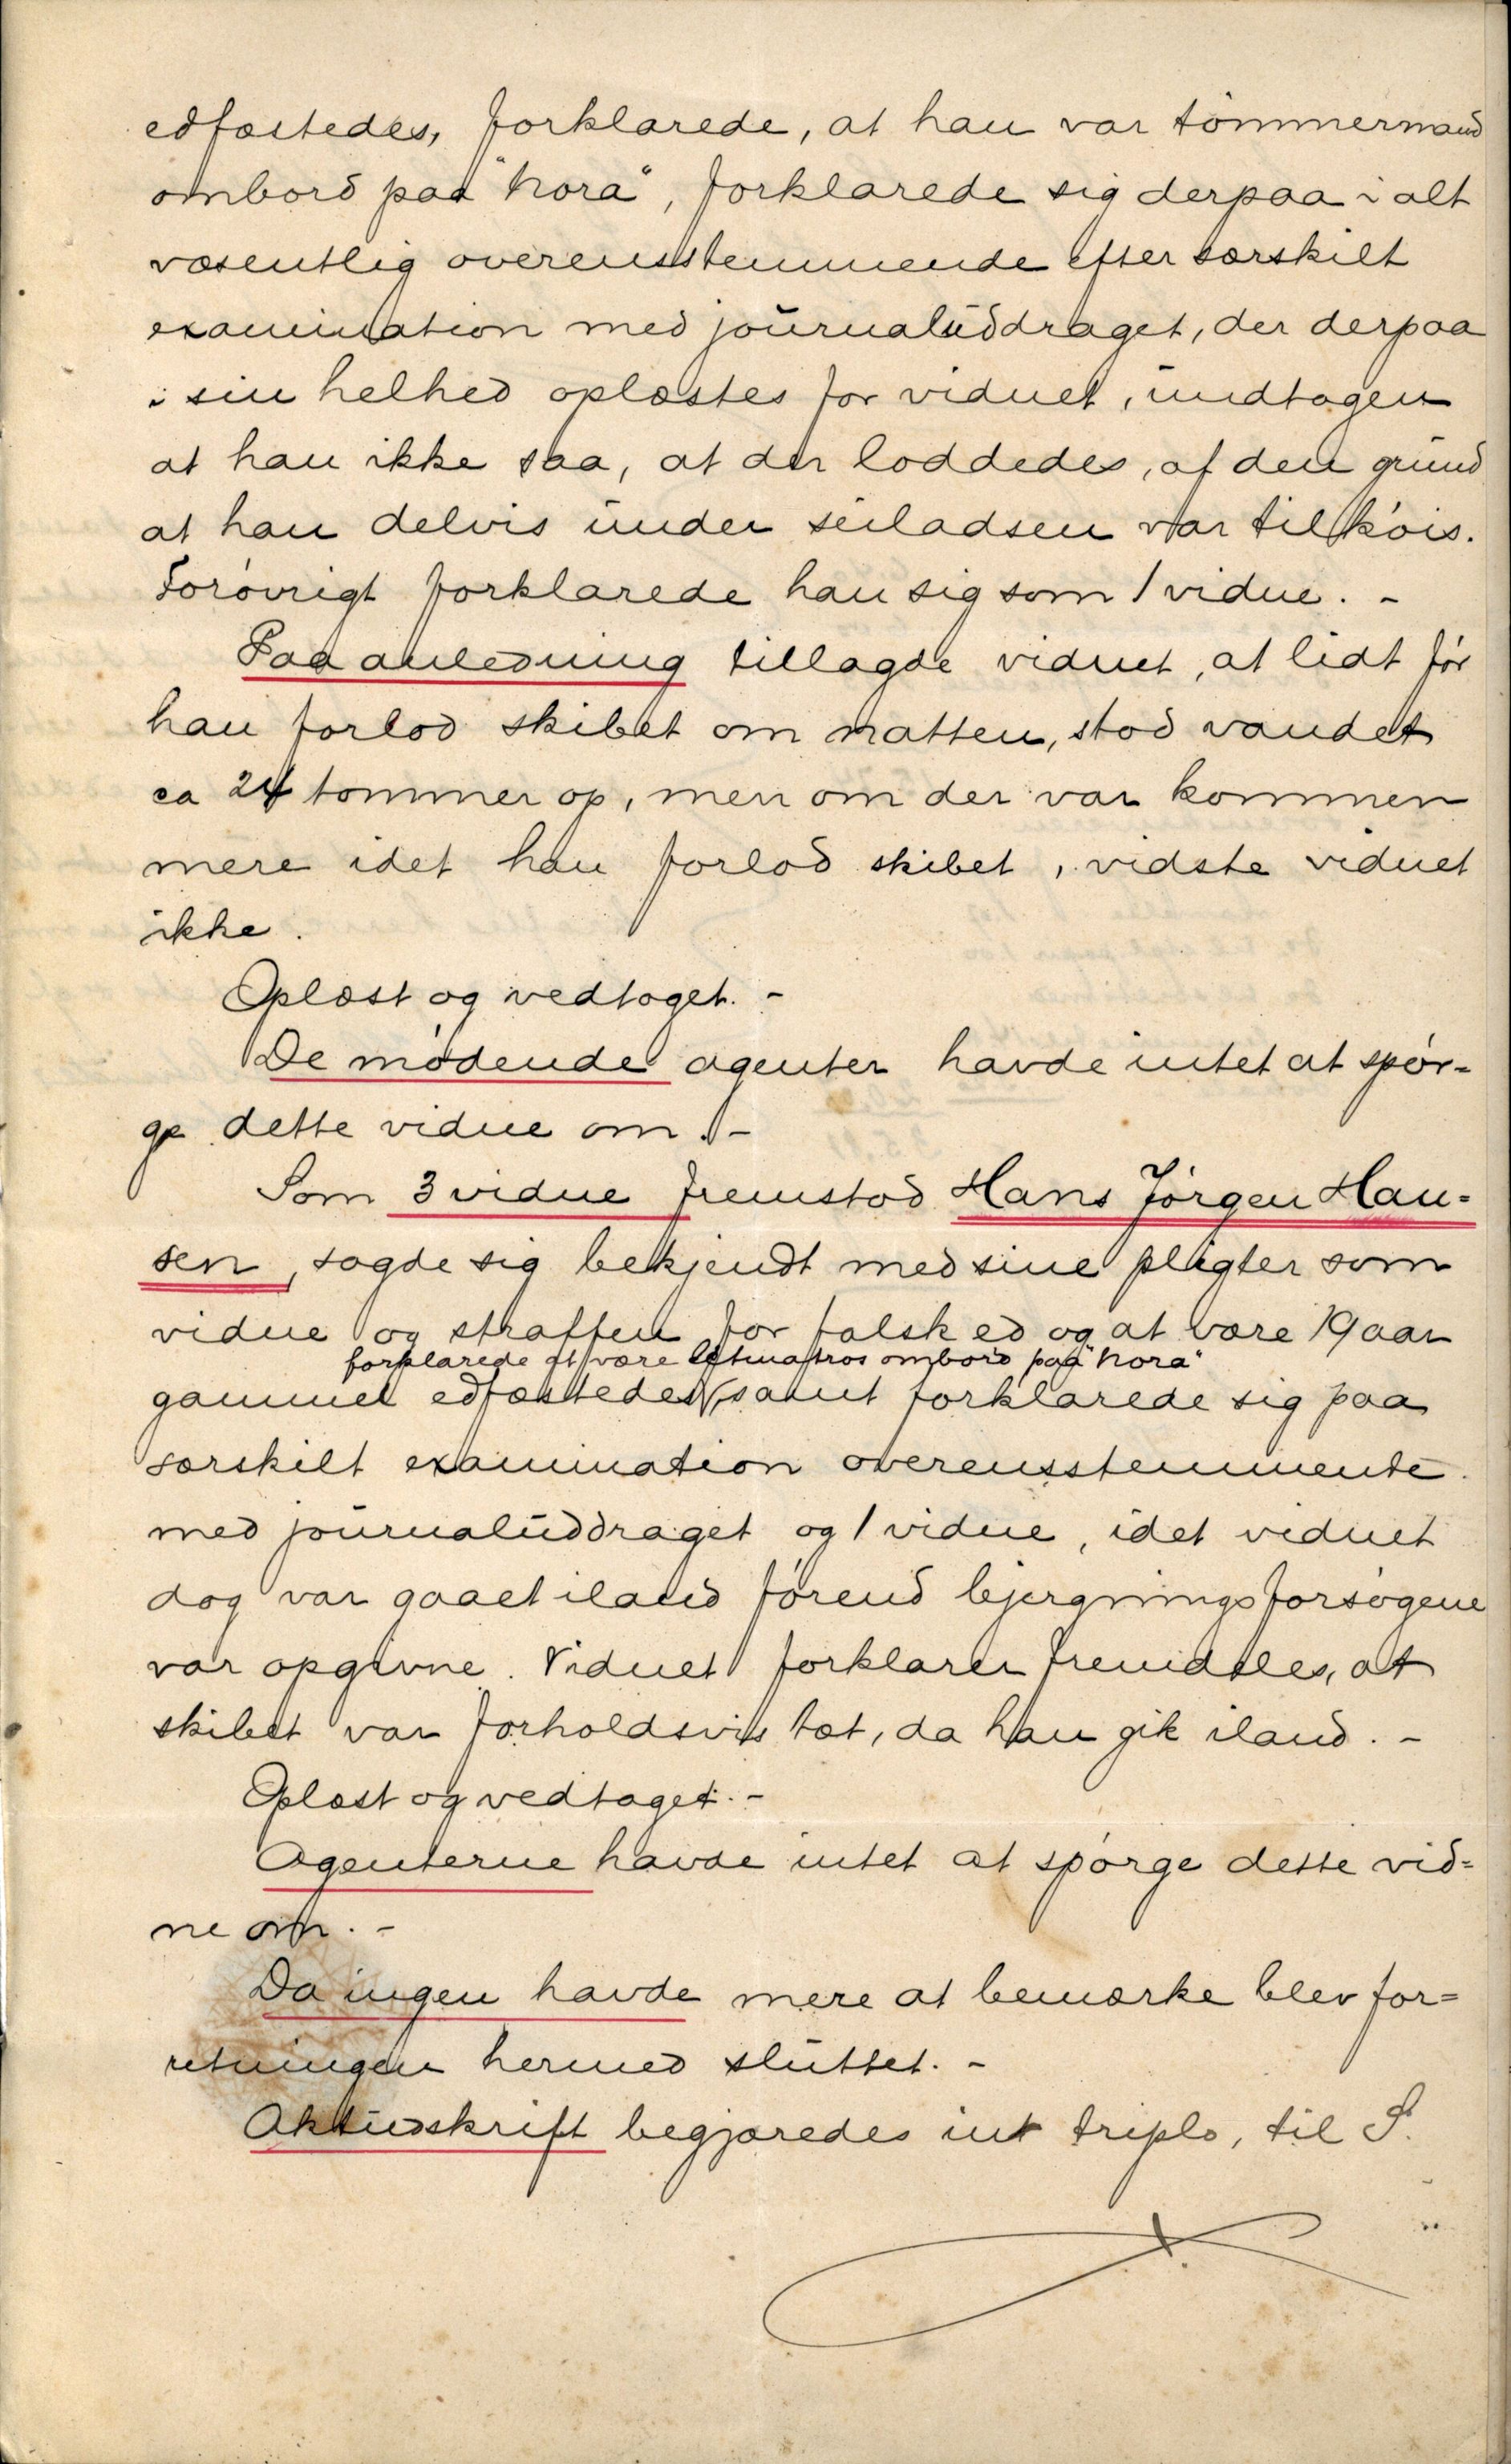 edfæstedes, forklarede, at han var tömmermand
ombord paa "Nora", forklarede sig derpaa i alt
væsentlig overensstemmende efter særskilt
examination med journaluddraget, der derpaa
i sin helhed oplæstes for vidnet, undtagen
at han ikke saa, at der loddedes, af den grund
at han delvis under seiladsen var tilkøis.
Forøvrigt forklarede han sig som 1 vidne. -
Paa anledning tillagde vidnet, at lidt før
han forlod skibet om natten, stod vandet
ca 24 tommer op, men om der var kommen
mere idet han forlod skibet, vidste vidnet
ikke.
Oplæst og vedtaget. -
De mødende agenter havde intet at spør=
ge dette vidne om. -
Som 3 vidne fremstod Hans Jørgen Han=
sen, sagde sig bekjendt med sine pligter som
vidne og straffen for falsk ed og at være 19 aar
forklarede at være letmatros ombord paa "Nora"
gammel edfæstedes, samt forklarede sig paa
særskilt examination overensstemmende
med journaluddraget og 1 vidne, idet vidnet
dog var gaaet iland førend bjergningsforsøgene
var opgivne. Vidnet forklarer fremdeles, at
skibet var forholdsvis tæt, da han gik iland. -
Oplæst og vedtaget. -
Agenterne havde intet at spørge dette vid=
ne om. -
Da ingen havde mere at bemærke blev for=
retningen hermed sluttet. -
Aktudskrift begjæredes in triplo, til S.